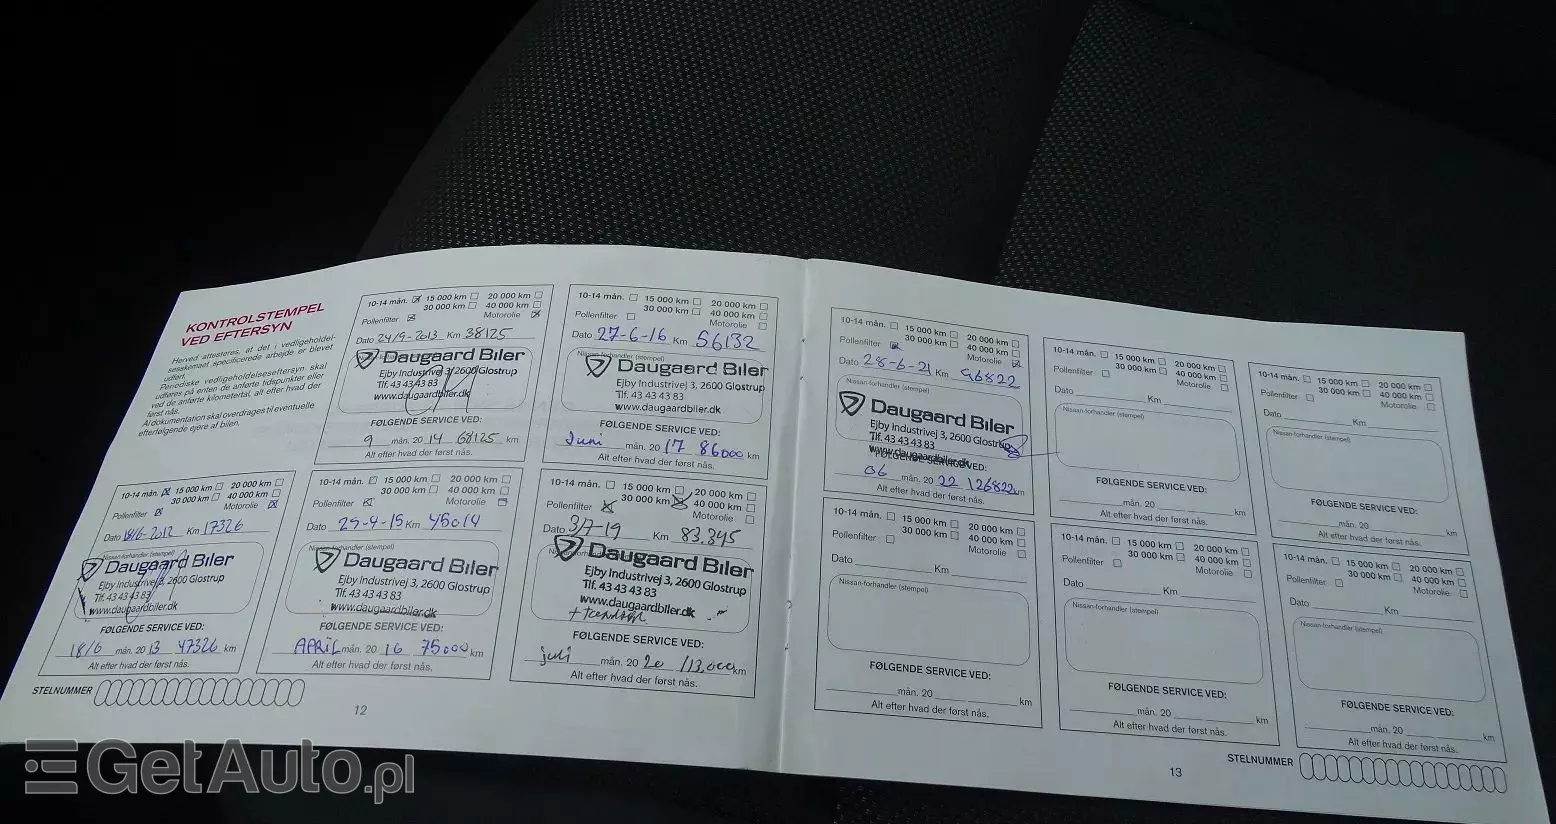 KONTROLSTEMPEL
VED EFTERSYN
Herved attesteres, at det i vedligeholdel-
sesskemaet specificerede arbejde er blevet
udført.
Periodiske vedligeholdelseseftersyn skal
udføres på enten de anførte tidspunkter eller
ved de anførte kilometertal, alt efter hvad der
først nås.
Al dokumentation skal overdrages til eventuelle
efterfølgende ejere af bilen.
10-14 mån. 15 000 km 20 000 km
30 000 km 40 000 km
Pollenfilter Motorolie
Dato 18/6-2012 Km 17326
Nissan-forhandler (stempel)
Daugaard Biler
Ejby Industrivej 3, 2600 Glostrup
Tlf. 43 43 43 83
www.daugaardbiler.dk
FØLGENDE SERVICE VED:
18/6 mån. 20 13 47326 km
Alt efter hvad der først nås.
10-14 mån. 15 000 km 20 000 km
30 000 km 40 000 km
Pollenfilter Motorolie
Dato 24/9-2013 Km 38125
Daugaard Biler
Ejby Industrivej 3, 2600 Glostrup
Tlf. 43 43 43 83
www.daugaardbiler.dk
FØLGENDE SERVICE VED:
9 mån. 20 14 68125 km
Alt efter hvad der først nås.
10-14 mån. 15 000 km 20 000 km
30 000 km 40 000 km
Pollenfilter Motorolie
Dato 29-4-15 Km 45014
Nissan-forhandler (stempel)
Daugaard Biler
Ejby Industrivej 3, 2600 Glostrup
Tlf. 43 43 43 83
www.daugaardbiler.dk
FØLGENDE SERVICE VED:
APRIL mån. 20 16 75000 km
Alt efter hvad der først nås.
10-14 mån. 15 000 km 20 000 km
30 000 km 40 000 km
Pollenfilter Motorolie
Dato 27-6-16 Km 56132
Nissan-forhandler (stempel)
Daugaard Biler
Ejby Industrivej 3, 2600 Glostrup
Tlf. 43 43 43 83
www.daugaardbiler.dk
FØLGENDE SERVICE VED:
Juni mån. 20 17 86000 km
Alt efter hvad der først nås.
10-14 mån. 15 000 km 20 000 km
30 000 km 40 000 km
Pollenfilter Motorolie
Dato 3/7-19 Km 83.845
Daugaard Biler
Ejby Industrivej 3, 2600 Glostrup
Tlf. 43 43 43 83
www.daugaardbiler.dk
FØLGENDE SERVICE VED:
juli mån. 20 20 113,000 km
Alt efter hvad der først nås.
STELNUMMER
12
10-14 mån. 15 000 km 20 000 km
30 000 km 40 000 km
Pollenfilter Motorolie
Dato 28-6-21 Km 96822
Nissan-forhandler (stempel)
Daugaard Biler
Ejby Industrivej 3, 2600 Glostrup
Tlf. 43 43 43 83
www.daugaardbiler.dk
FØLGENDE SERVICE VED:
06 mån. 20 22 126822 km
Alt efter hvad der først nås.
10-14 mån. 15 000 km 20 000 km
30 000 km 40 000 km
Pollenfilter Motorolie
Dato Km
Nissan-forhandler (stempel)
FØLGENDE SERVICE VED:
mån. 20 km
Alt efter hvad der først nås.
10-14 mån. 15 000 km 20 000 km
30 000 km 40 000 km
Pollenfilter Motorolie
Dato Km
Nissan-forhandler (stempel)
FØLGENDE SERVICE VED:
mån. 20 km
Alt efter hvad der først nås.
10-14 mån. 15 000 km 20 000 km
30 000 km 40 000 km
Pollenfilter Motorolie
Dato Km
Nissan-forhandler (stempel)
FØLGENDE SERVICE VED:
mån. 20 km
Alt efter hvad der først nås.
10-14 mån. 15 000 km 20 000 km
30 000 km 40 000 km
Pollenfilter Motorolie
Dato Km
Nissan-forhandler (stempel)
FØLGENDE SERVICE VED:
mån. 20 km
Alt efter hvad der først nås.
10-14 mån. 15 000 km 20 000 km
30 000 km 40 000 km
Pollenfilter Motorolie
Dato Km
Nissan-forhandler (stempel)
FØLGENDE SERVICE VED:
mån. 20 km
Alt efter hvad der først nås.
STELNUMMER
13
GetAuto.pl